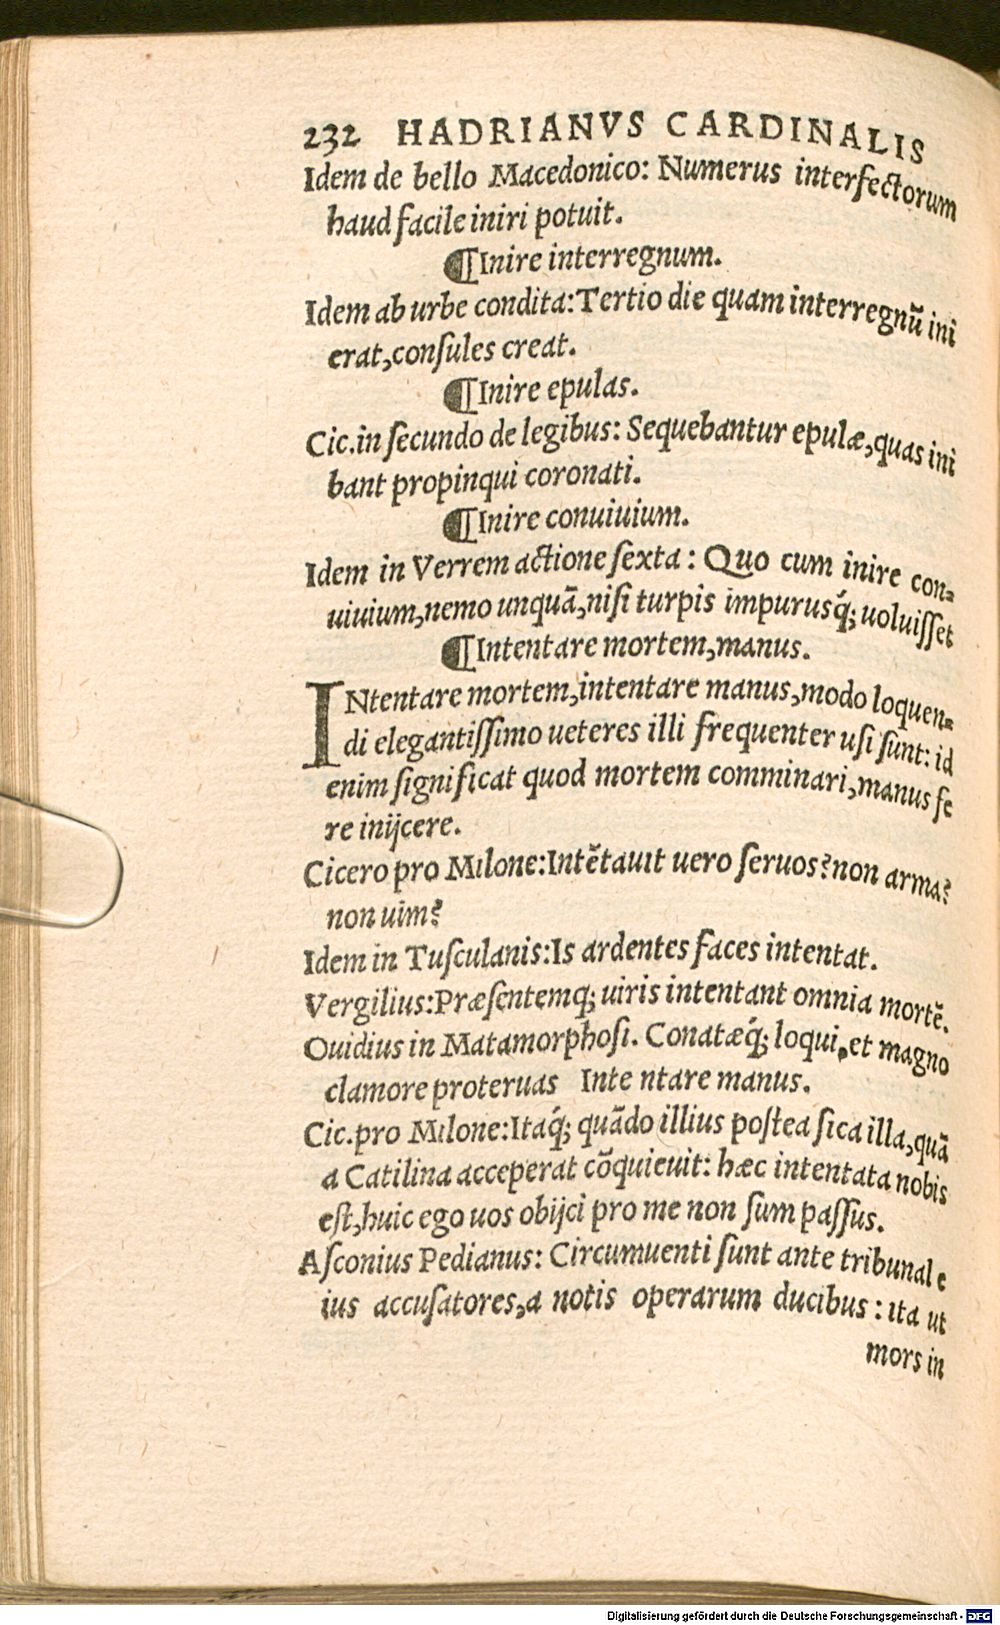 232 HADRIANVS CARDINALIS
Idem de bello Macedonico: Numerus interfectorum
haud facile iniri potuit.
¶Inire interregnum.
Idem ab urbe condita:Tertio die quam interregnũ ini
erat,consules creat.
¶Inire epulas.
Cic.in secundo de legibus: Sequebantur epulæ,quas ini
bant propinqui coronati.
¶Inire conuiuium.
Idem in Verrem actione sexta : Quo cum inire con-
uiuium,nemo unquã,nisi turpis impurusq́; uoluisset
¶Intentare mortem,manus.
INtentare mortem,intentare manus,modo loquen-
di elegantissimo ueteres illi frequenter usi sunt: id
enim significat quod mortem comminari,manus fe
re inijcere.
Cicero pro Milone:Intẽtauit uero seruos?non arma?
non uim?
Idem in Tusculanis:Is ardentes faces intentat.
Vergilius:Præsentemq; uiris intentant omnia mortẽ.
Ouidius in Matamorphosi. Conatæq́; loqui,et magno
clamore proteruas Inte ntare manus.
Cic.pro Milone:Itaq́; quãdo illius postea sica illa,quã
a Catilina acceperat cõquieuit: hæc intentata nobis
est,huic ego uos obijci pro me non sum passus.
Asconius Pedianus: Circumuenti sunt ante tribunal e
ius accusatores,a notis operarum ducibus : ita ut
mors in
Digitalisierung gefördert durch die Deutsche Forschungsgemeinschaft - DFG